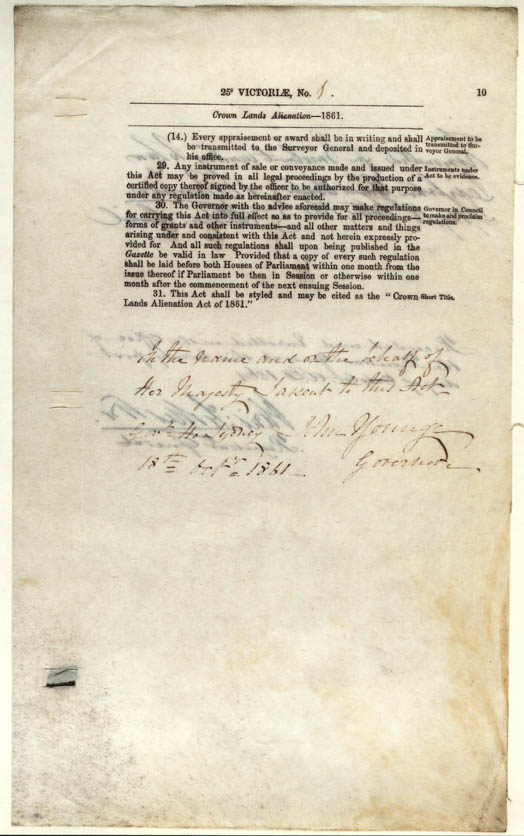 25° VICTORIÆ, No. 1. 10
Crown Lands Alienation—1861.
(14.) Every appraisement or award shall be in writing and shall
be transmitted to the Surveyor General and deposited in
his office.
Appraisement to be
transmitted to Sur-
veyor General.
29. Any instrument of sale or conveyance made and issued under
this Act may be proved in all legal proceedings by the production of a
certified copy thereof signed by the officer to be authorized for that purpose
under any regulation made as hereinafter enacted.
Instruments under
Act to be evidence.
30. The Governor with the advice aforesaid may make regulations
for carrying this Act into full effect so as to provide for all proceedings—
forms of grants and other instruments—and all other matters and things
arising under and consistent with this Act and not herein expressly pro-
vided for And all such regulations shall upon being published in the
Gazette be valid in law Provided that a copy of every such regulation
shall be laid before both Houses of Parliament within one month from the
issue thereof if Parliament be then in Session or otherwise within one
month after the commencement of the next ensuing Session.
Governor in Council
to make and proclaim
regulations.
31. This Act shall be styled and may be cited as the "Crown
Lands Alienation Act of 1861."
Short Title.
In the name and on the behalf of
Her Majesty I assent to this Act
Govt. Ho. Sydney John Young
18th Octr. 1861 Governor.